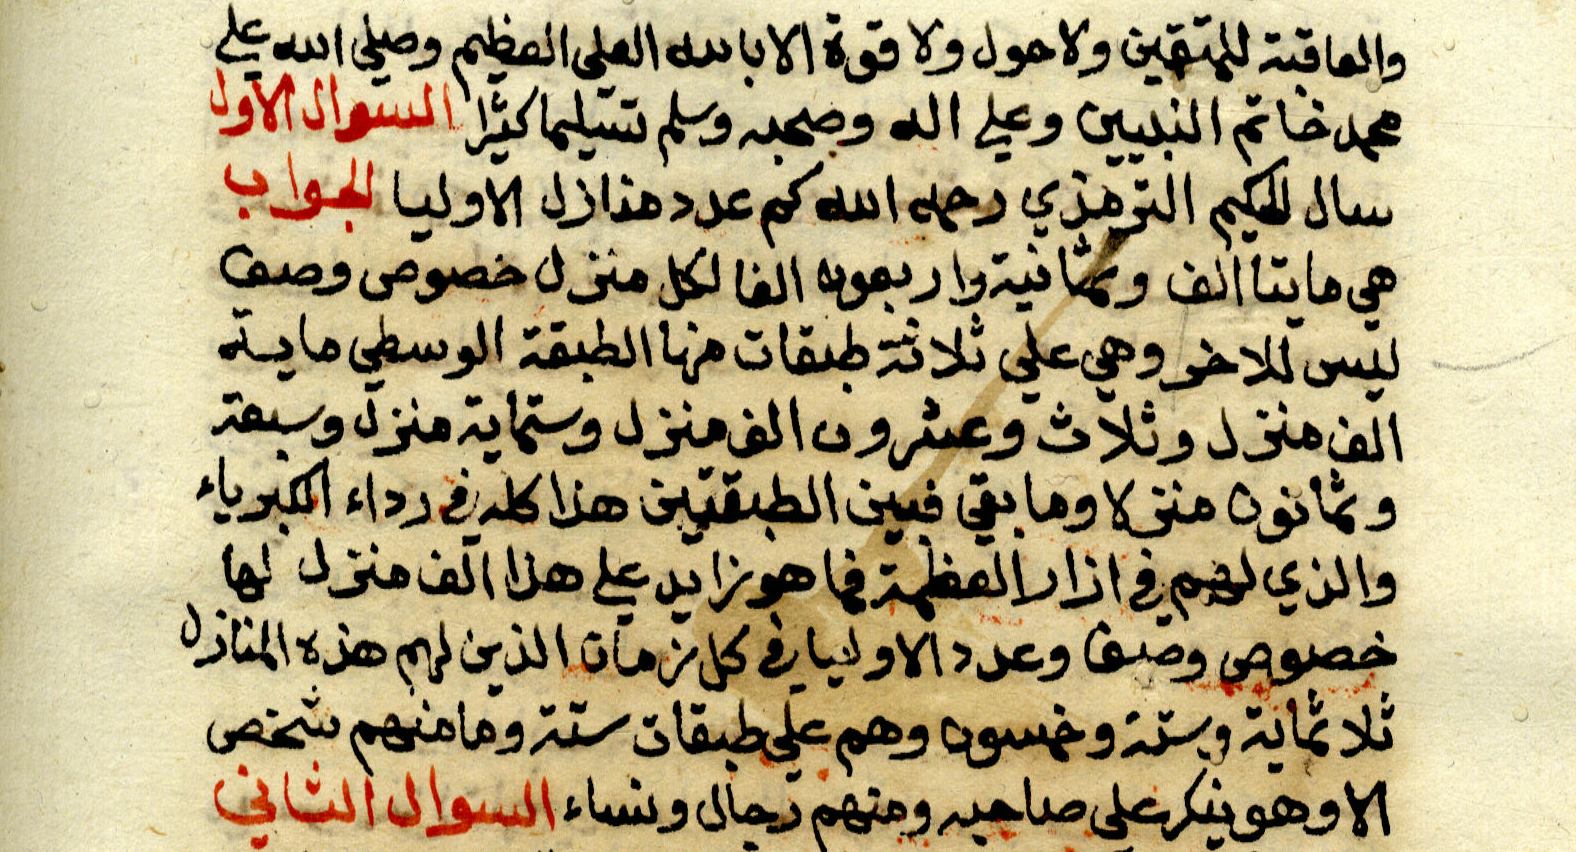 والعاقبة للمتقين ولا حول ولا قوة الا بالله العلي العظيم وصلي الله علي
محمد خاتم النبيين وعلي اله وصحبه وسلم تسليما كثيرا السوال الاول
سال الحكيم الترمذي رحمه الله كم عدد منازل الاوليا الجواب
هي مايتا الف وثمانية واربعون الفا لكل منزل خصوص وصف
ليس للاخر وهي علي ثلاثة طبقات منها الطبقة الوسطي ماية
الف منزل وثلاث وعشرون الف منزل وستماية منزل وسبعة
وثمانون منزلا وما بقي فبين الطبقتين هذا كله في رداء الكبرياء
والذي لهم في ازار العظمة فما هو زايد علي هذا الف منزل لها
خصوص وصف وعدد الاوليا في كل زمان الذين لهم هذه المنازل
ثلاثماية وستة وخمسون وهم علي طبقات ستة وما منهم شخص
الا وهو ينكر علي صاحبه ومنهم رجال ونساء السوال الثاني